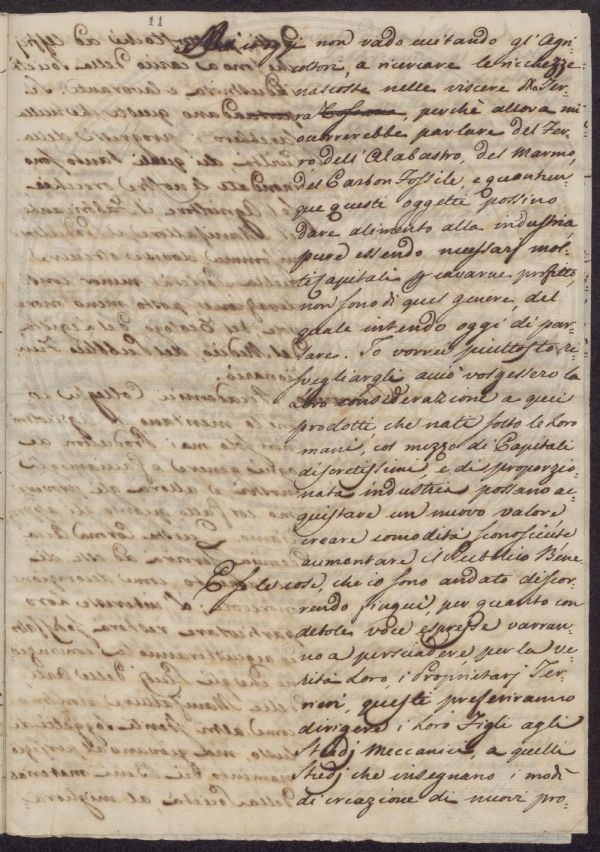 11
oggi non vado eccitando gl'Agri-
coltori, a ricercare le ricchezze
nascoste nelle viscere della Ter-
ra Toscana, perchè allora mi
occorrerebbe parlare del Fer-
ro, dell'Alabastro, del Marmo,
del Carbon Fossile, e quantun-
que questi oggetti possino
dare alimento alla industria
pure essendo necessarj mol-
ti Capitali per cavarne profitto,
non sono di quel genere, del
quale intendo oggi di par-
lare. Io vorrei piuttosto ri-
svegliargli acciò volgessero la
Loro considerazione a quei
prodotti che nati sotto le Loro
mani, col mezzo di Capitali
discretissimi, e di proporzio-
nata industria possano ac-
quistare un nuovo valore
creare comodità sconosciute
aumentare il Pubblico Bene.
E se le cose, che io sono andato discor-
rendo finquì, per quanto con
debole voce espresse varran-
no a persuadere per la ve-
rità Loro, i Proprietarj Ter-
rieri, questi preferiranno
dirigere i Loro Figli agli
Studj Meccanici, a quelli
Studj che insegnano i modi
di creazione di nuovi pro-